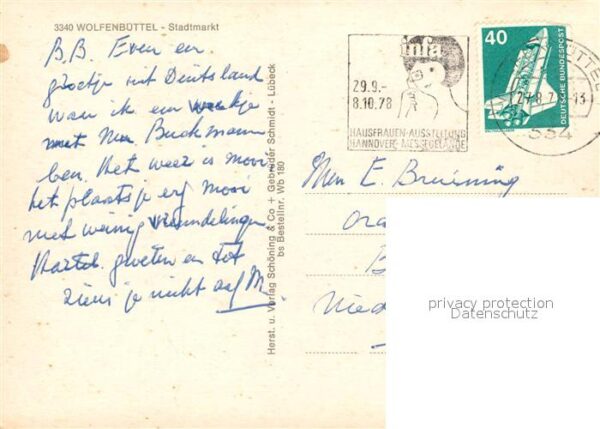 3340 WOLFENBÜTTEL - Stadtmarkt
B.B. Even en
groetje uit Duitsland
waar ik een weekje
met Mw. Buckmann
ben. Het weer is mooi
het plaatsje erg mooi
met weinig wandelingen
Hartel. groeten en tot
ziens je nicht
Herst. u. Verlag Schöning & Co + Gebrüder Schmidt - Lübeck
bs Bestellnr. Wb 180
infa
29.9.-
8.10.78
HAUSFRAUEN-AUSSTELLUNG
HANNOVER-MESSEGELÄNDE
40
DEUTSCHE BUNDESPOST
334
Mw E. Bruining
Ora
B
Nied
privacy protection
Datenschutz